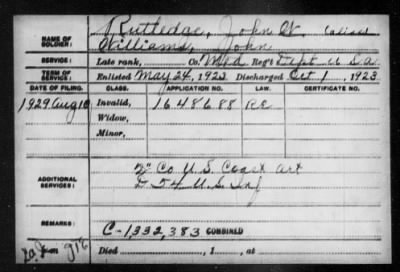 NAME OF SOLDIER: Rutledge, John W. (alias
Williams, John
SERVICE: Late rank, Co. Med Reg't Dept U S A.
TERM OF SERVICE: Enlisted May 24, 1922 Discharged Oct 1, 1923
DATE OF FILING. CLASS. APPLICATION NO. LAW. CERTIFICATE NO.
1929 Aug 10 Invalid, 1648688 Re
Widow,
Minor,
ADDITIONAL SERVICES: 2" Co U.S. Coast Art
D 54 U.S. Inf
REMARKS: C-1,332,383 COMBINED
Died , 1 , at